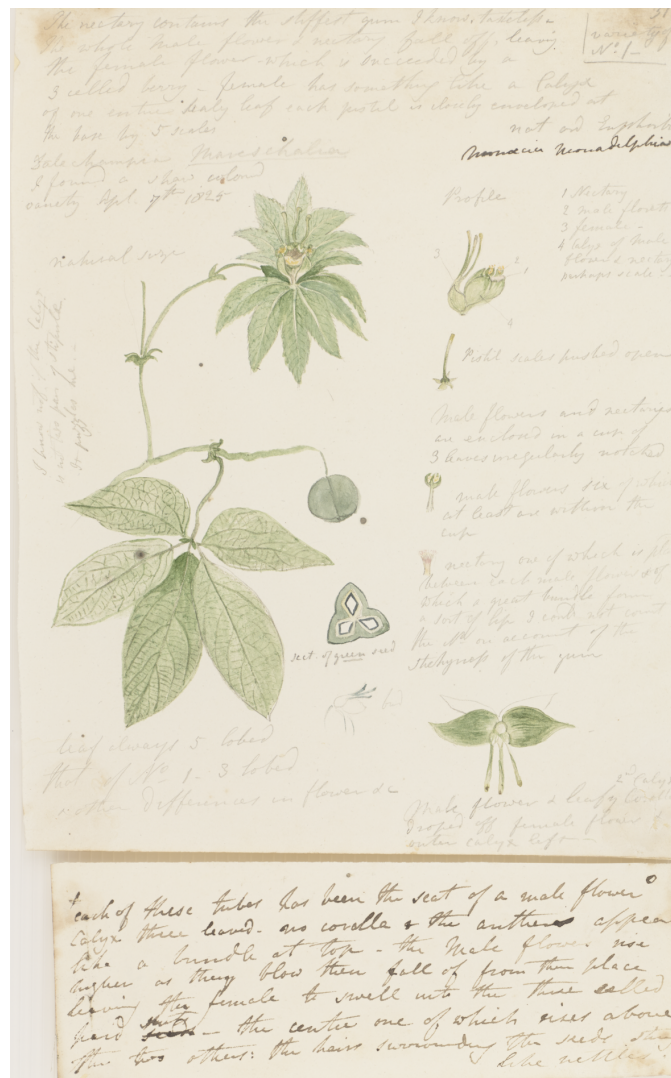 The nectary contains the stiffest gum I know, tasteless
the whole male flower & nectary fall off, leaving
the female flower - which is succeeded by a
3 celled berry - female has something like a Calyx
of one entire scaly leaf each pistil is closely enveloped at
the base by 5 scales
variety of
No. 1 -
not ord Euphorb
Monœcia Monadelphia
Dalechampia
I found a colored
variety Apl. 7th 1825
natural size
Profile
1 Nectary
2 male florets
3 female -
4 Calyx of Male
flower & nectary
perhaps scale
3
2
1
4
Pistil scales pushed open
Male flowers and nectaries
are enclosed in a cup of
3 leaves irregularly notched
male flowers six of which
at least are without the
cup
nectary one of which is
between each male flower & of
which a great bundle form
a sort of lip I could not count
the No. on account of the
of the gum
sect. of green seed
leaf always 5 lobed
that of No. 1 - 3 lobed
& other differences in flower &c
2d Calyx
Male flower & leafy
droped off female flower &
outer calyx left -
+ each of these tubes has been the seat of a male flower
Calyx three leaved - no corolla & the anthers appear
like a bundle at top - the Male flowers rise
higher as they blow then fall of from their place
leaving the female to swell into the three celled
hard - the centre one of which rises above
the two others: the hairs surrounding the seeds
like nettles